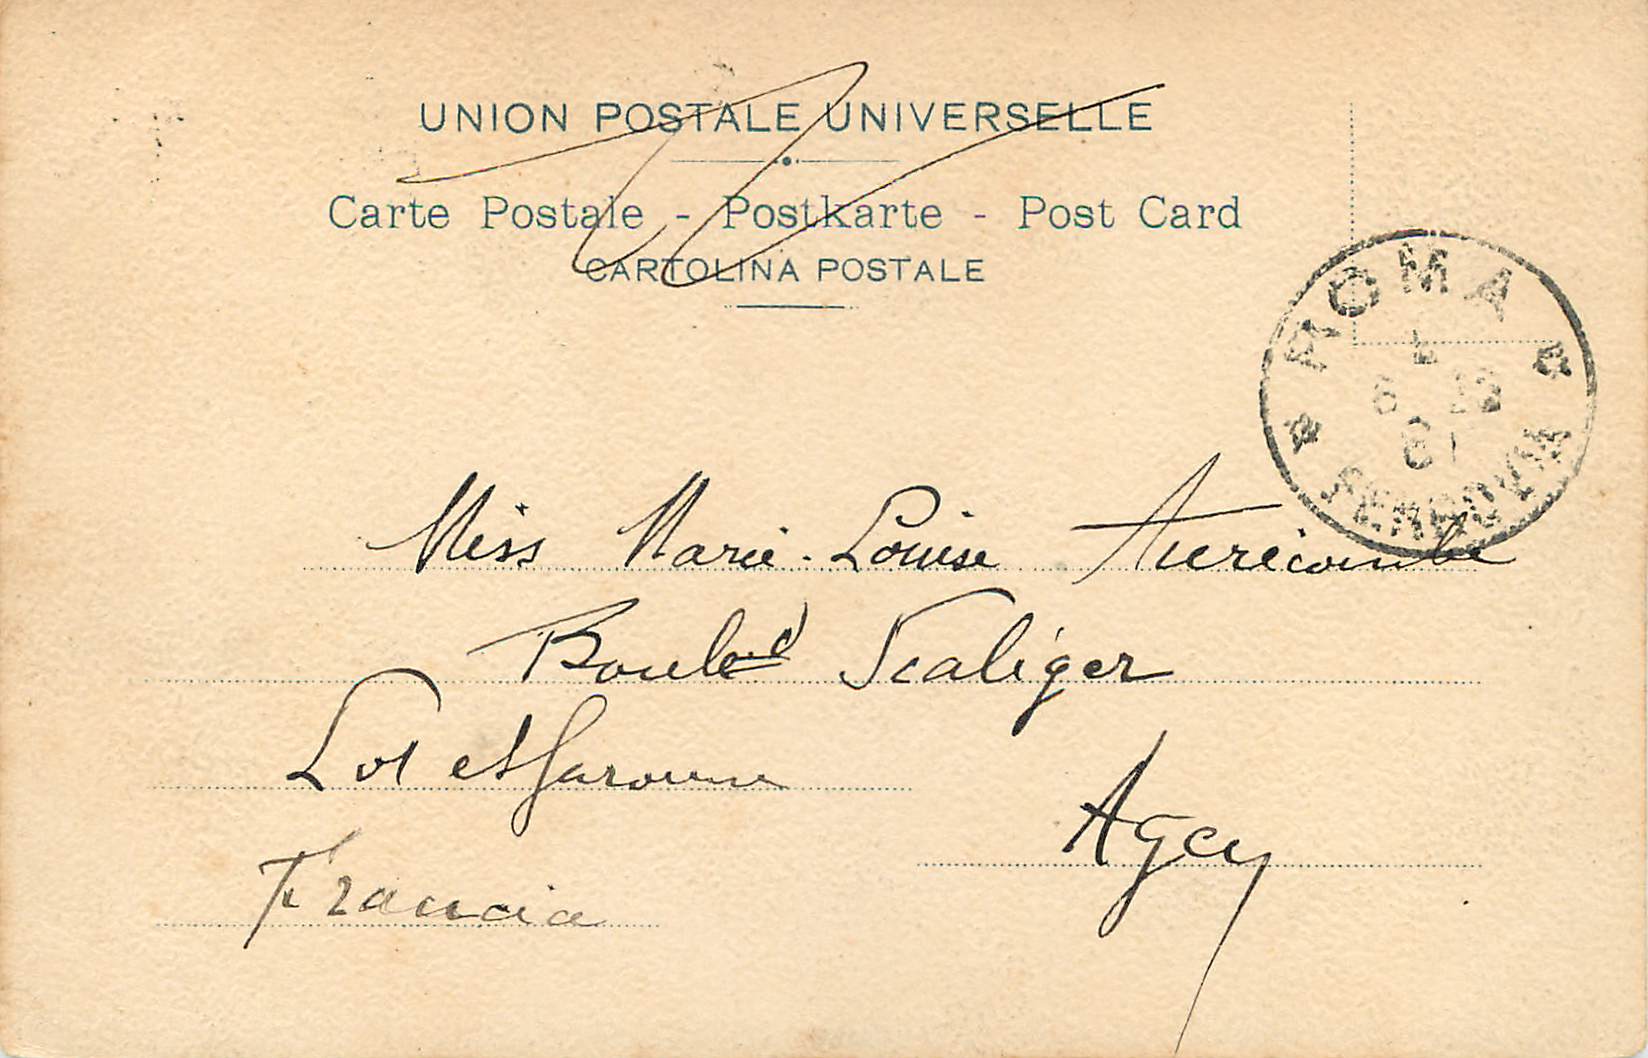 UNION POSTALE UNIVERSELLE
Carte Postale - Postkarte - Post Card
CARTOLINA POSTALE
ROMA
FERROVIA
Miss Marie-Louise Auricombe
Bouled Scaliger
Lot et Garonne
Agen
Francia